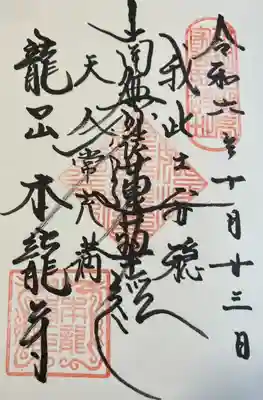 令和六年十月廿三日
我此土安穏
南無妙法蓮華経
天人常充満
龍口 本龍寺